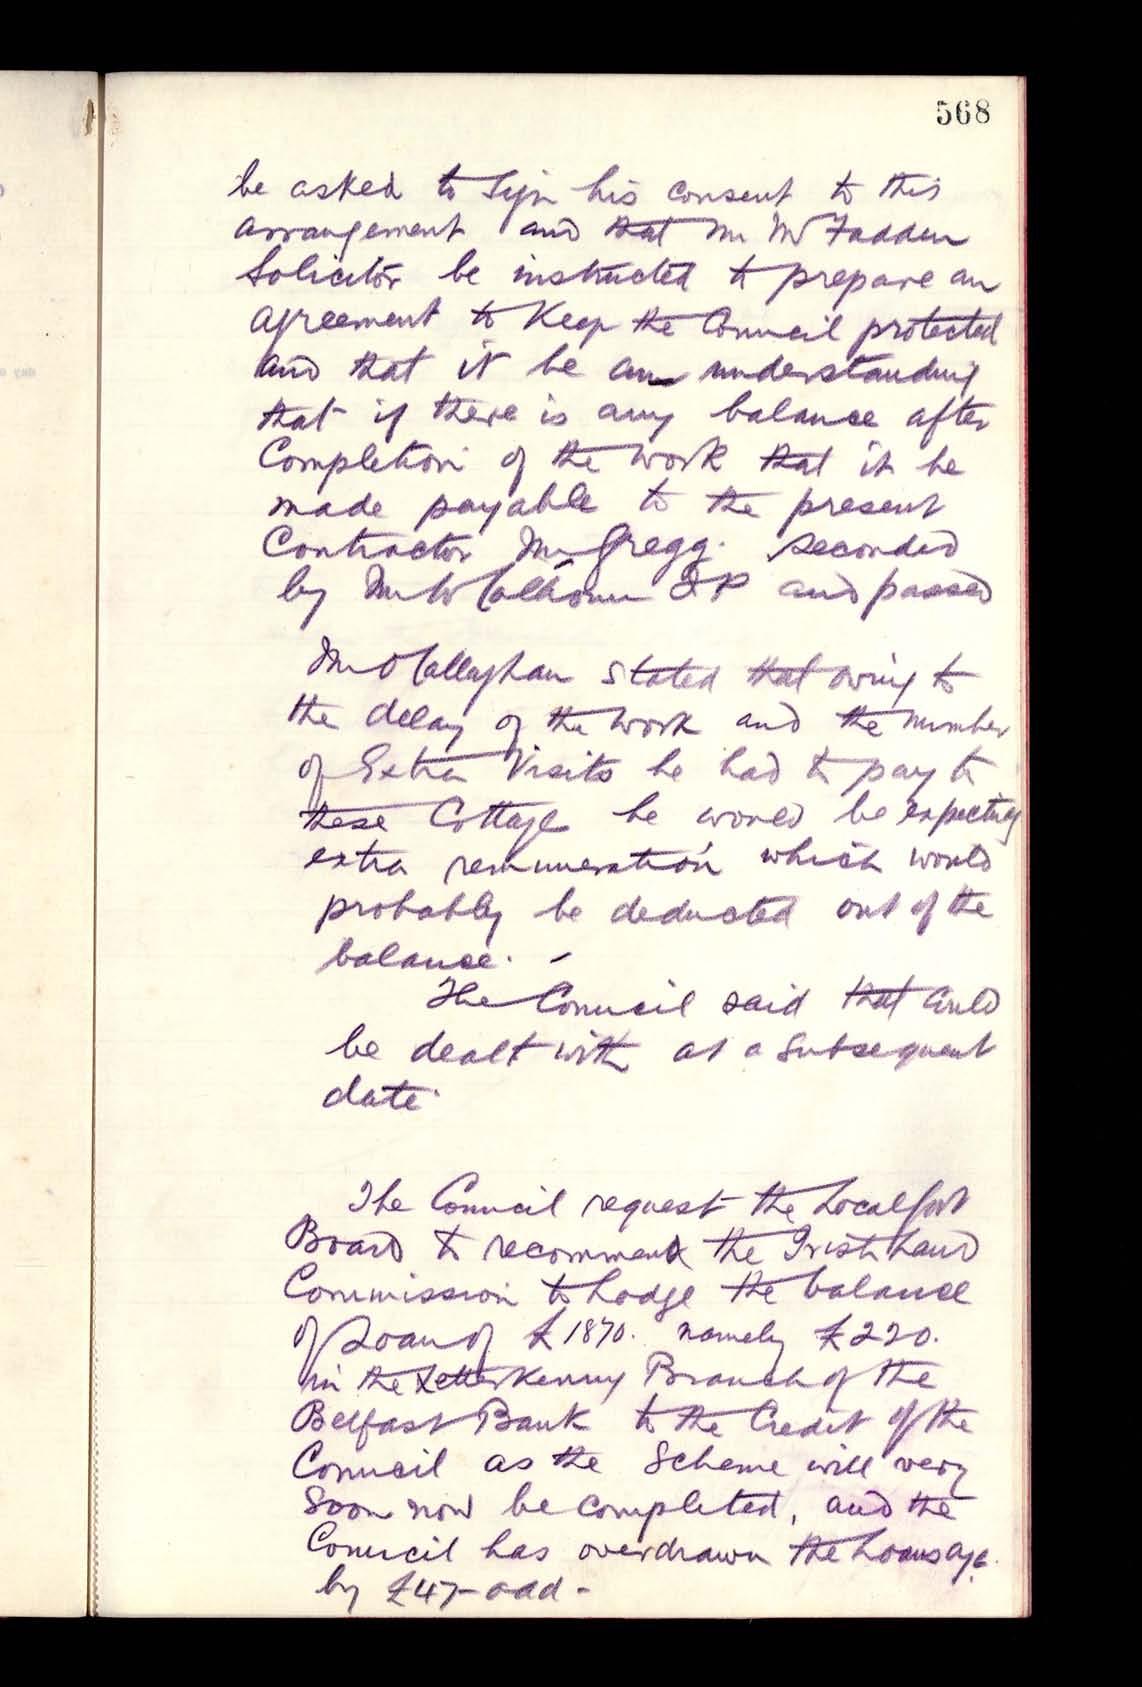 568
be asked to sign his consent to this
arrangement and that Mr McFadden
Solicitor be instructed to prepare an
agreement to Keep the Council protected
and that it be an understanding
that if there is any balance after
Completion of the work that it be
made payable to the present
Contractor Mr Gregg. Seconded
by Mr W Calhoun JP and passed
Mr O Callaghan stated that owing to
the delay of the work and the number
of Extra Visits he had to pay to
these Cottage he would be expecting
extra remuneration which would
probably be deducted out of the
balance. -
The Council said that could
be dealt with at a Subsequent
date.
The Council request the Local Govt
Board to recommend the Irish Land
Commission to Lodge the balance
of Loan of £1870. namely £220.
in the Letterkenny Branch of the
Belfast Bank to the Credit of the
Council as the Scheme will very
Soon now be completed, and the
Council has overdrawn the Loans a/c.
by £47-odd-